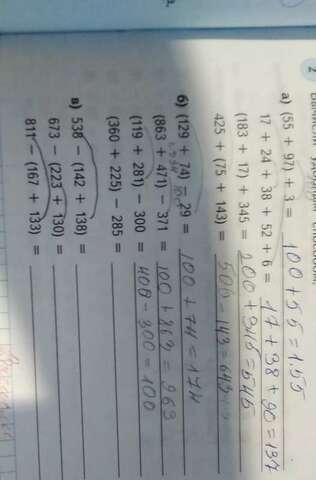 2 Вычисли удобным способом.
а) (55 + 97) + 3 = 100 + 55 = 155
17 + 24 + 38 + 52 + 6 = 17 + 38 + 90 = 137
(183 + 17) + 345 = 200 + 345 = 545
425 + (75 + 143) = 500 - 143 = 643
б) (129 + 74) – 29 = 100 + 74 = 174
(863 + 471) – 371 = 100 + 863 = 963
(119 + 281) – 300 = 400 - 300 = 100
(360 + 225) – 285 =
в) 538 – (142 + 138) =
673 – (223 + 130) =
811 – (167 + 133) =